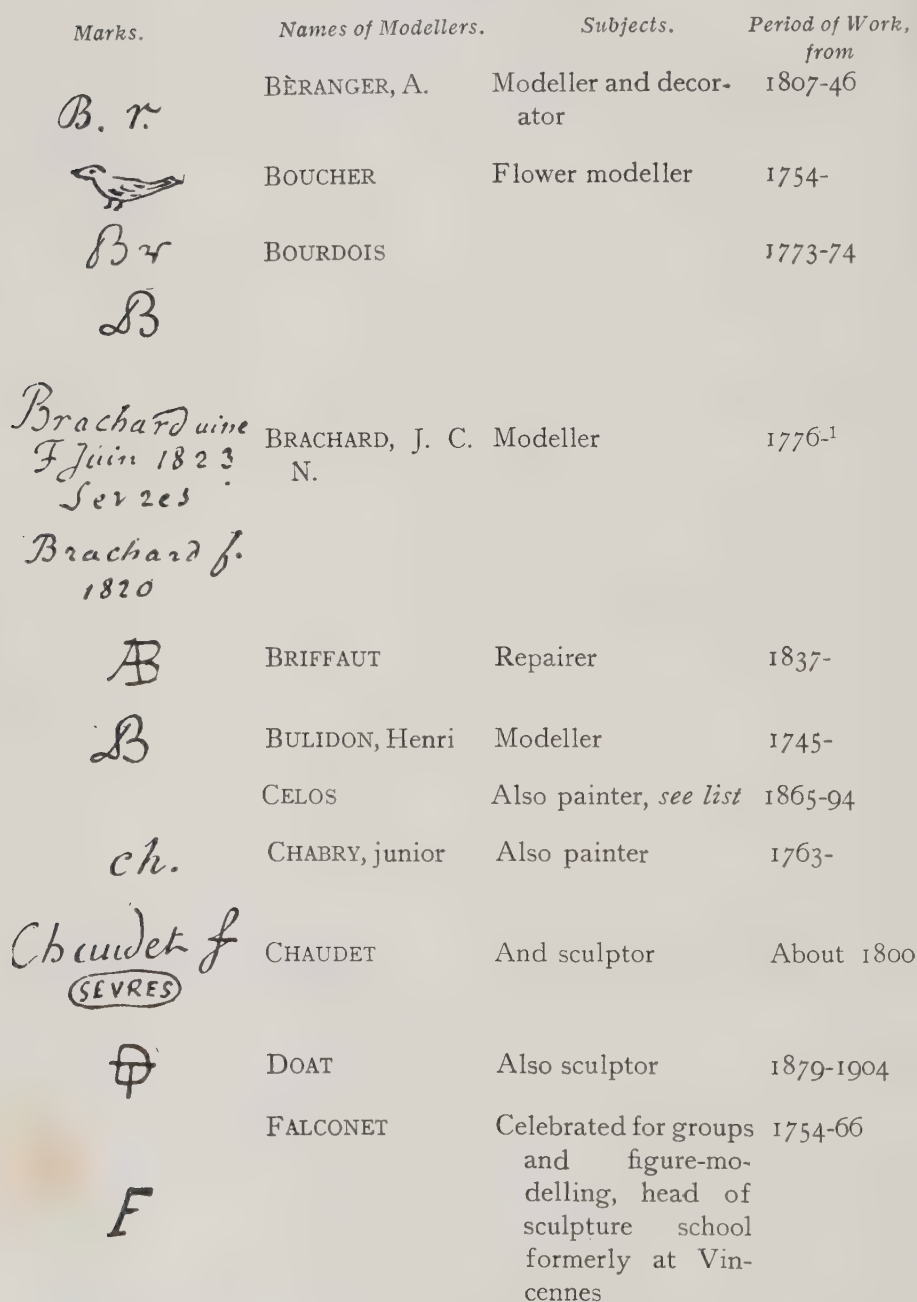 Marks. Names of Modellers. Subjects. Period of Work,
from
B. r. BÈRANGER, A. Modeller and decor- 1807-46
ator
BOUCHER Flower modeller 1754-
Br BOURDOIS 1773-74
B
Brachard aine
F Juin 1823
Sevres
BRACHARD, J. C. Modeller 1776-¹
N.
Brachard f.
1820
AB BRIFFAUT Repairer 1837-
B BULIDON, Henri Modeller 1745-
CELOS Also painter, see list 1865-94
ch. CHABRY, junior Also painter 1763-
Chaudet f CHAUDET And sculptor About 1800
SEVRES
DOAT Also sculptor 1879-1904
FALCONET Celebrated for groups 1754-66
and figure-mo-
delling, head of
F sculpture school
formerly at Vin-
cennes